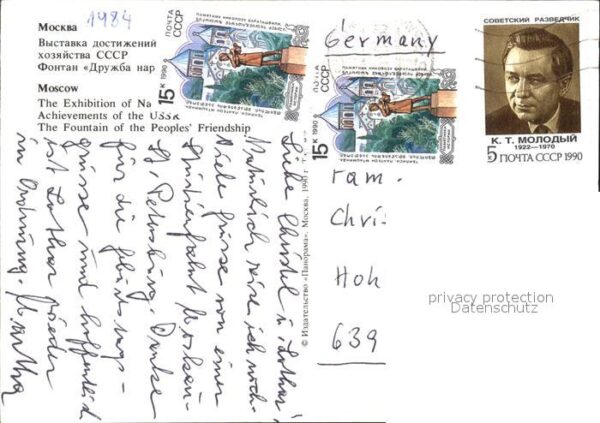 1984
Москва
Выставка достижений
хозяйства СССР
Фонтан «Дружба нар
Moscow
The Exhibition of Na
Achievements of the USSR
The Fountain of the Peoples' Friendship
ПОЧТА СССР
15 К 1990
ПОЧТА
15 К 1990
СОВЕТСКИЙ РАЗВЕДЧИК
К. Т. МОЛОДЫЙ
1922–1970
5 К ПОЧТА СССР 1990
Germany
Fam.
Chri
Hoh
639
© Издательство «Панорама». Москва. 1990 г.
Liebe Christel u. Lothar!
Natürlich will ich noch
viele Grüsse von einer
Moskau-
St Petersburg. Danke
für die Geburtstags-
grüsse und hoffentlich
ist Lothar wieder
in Ordnung. Martha
privacy protection
Datenschutz